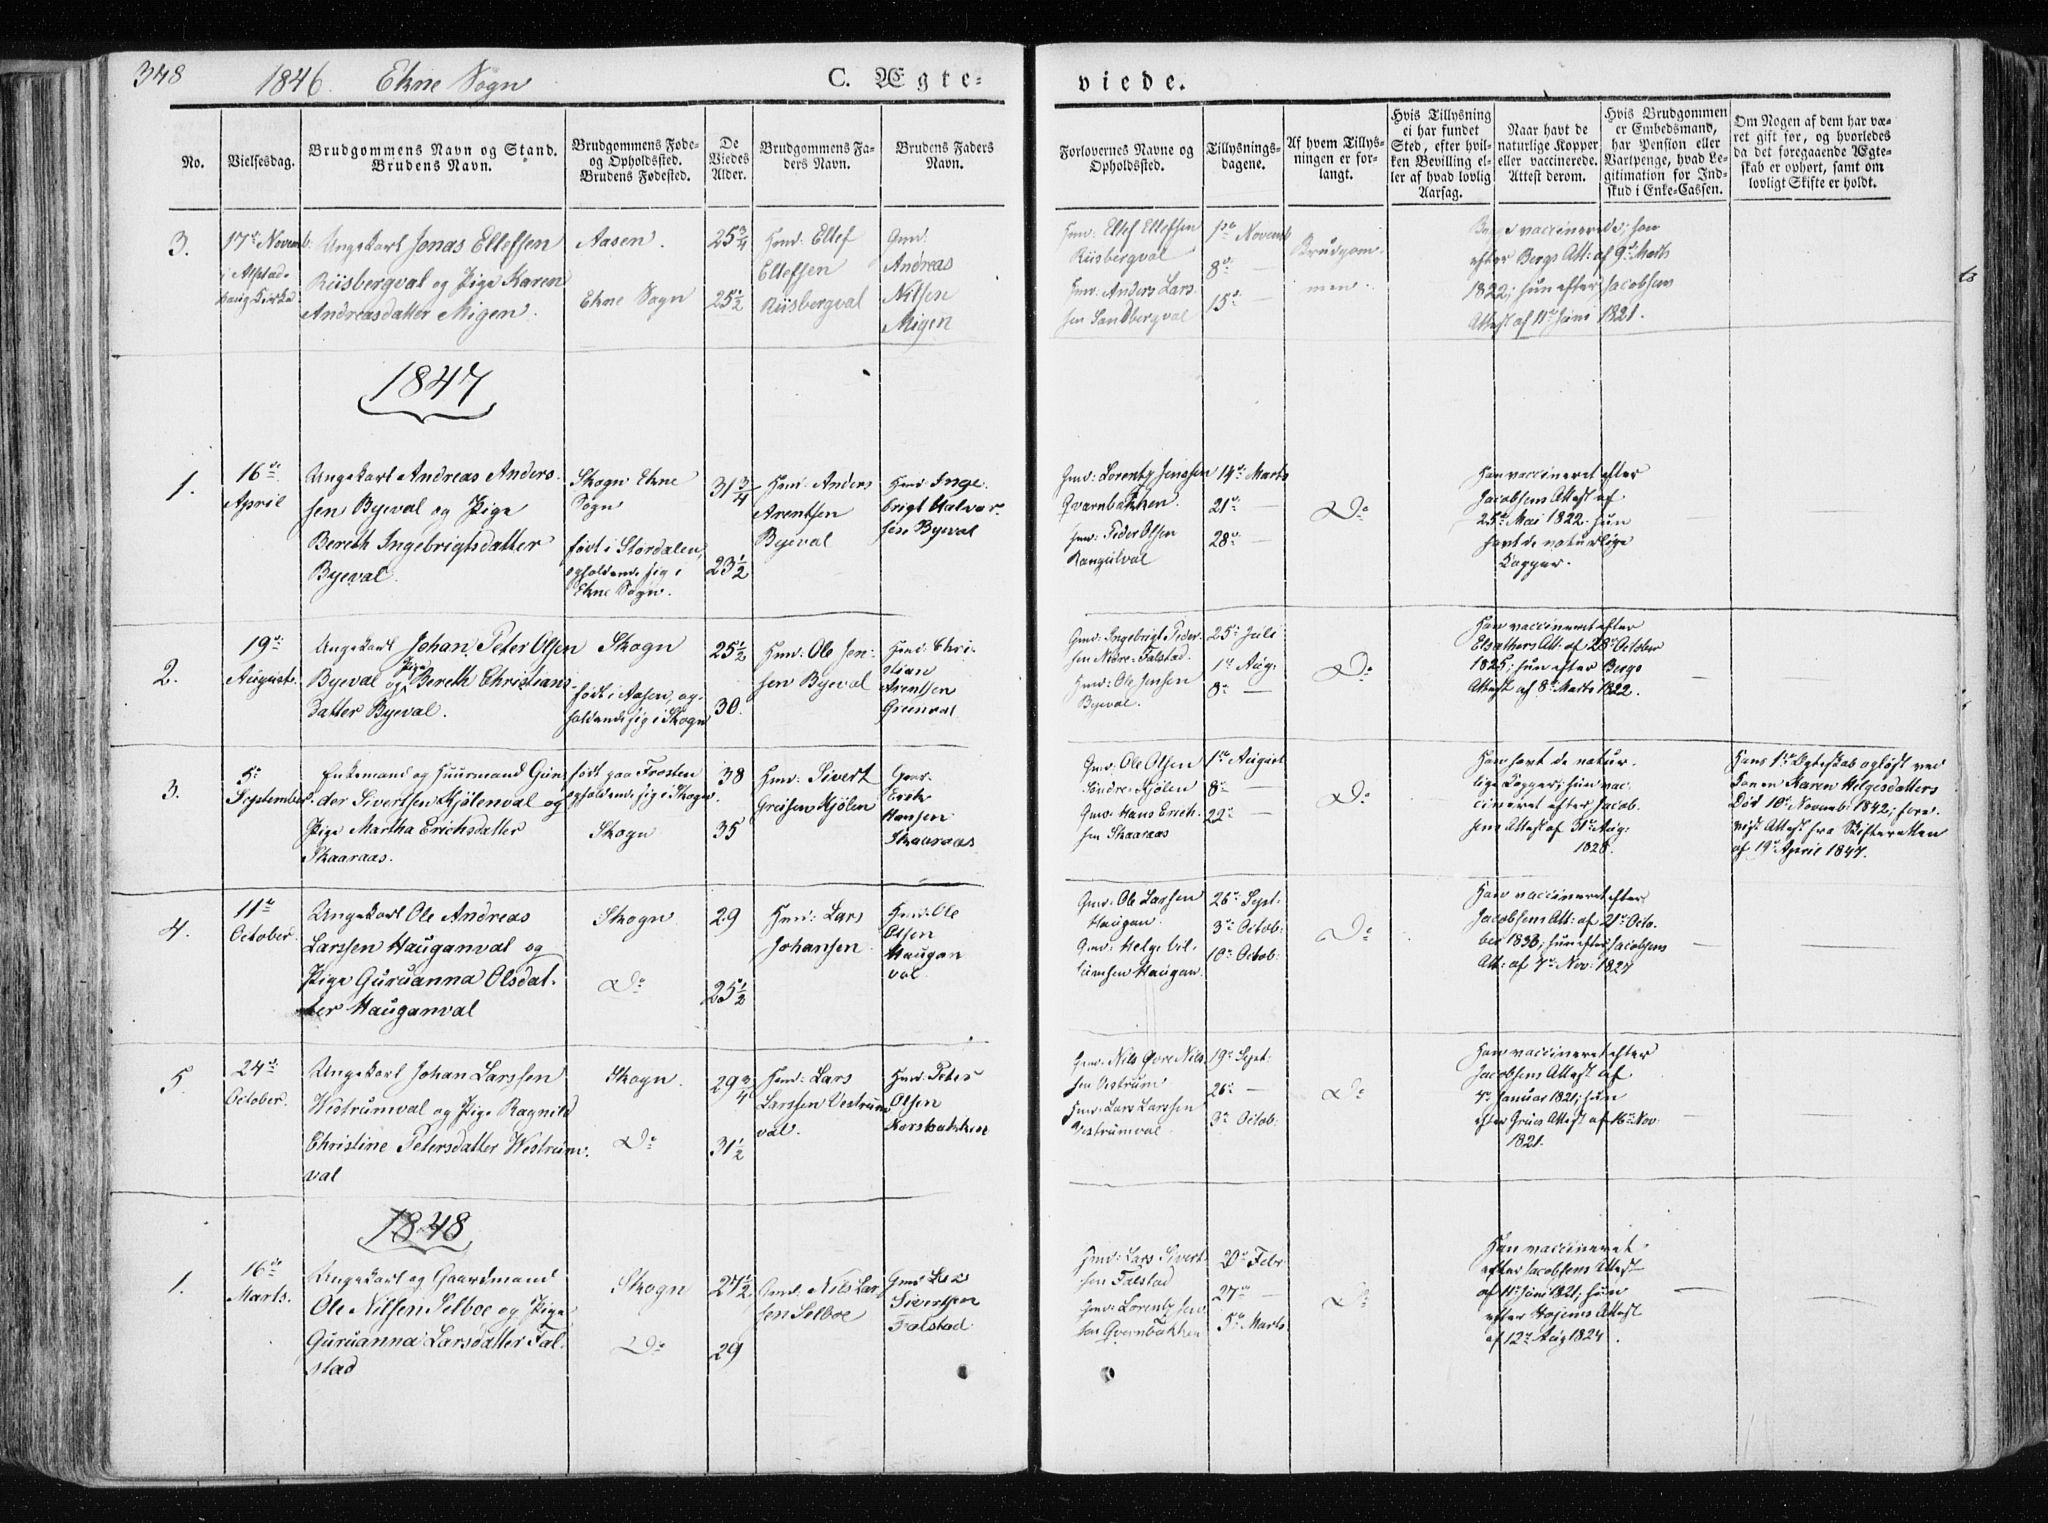 348
1846.
Ekne Sogn
C. Ægte-
viede.
No.
Vielsesdag.
Brudgommens Navn og Stand.
Brudens Navn.
Brudgommens Føde-
og Opholdssted.
Brudens Fødested.
De
Viedes
Alder.
Brudgommens Fa-
ders Navn.
Brudens Faders
Navn.
Forlovernes Navne og
Opholdssted.
Tillysnings-
dagene.
Af hvem Tillys-
ningen er for-
langt.
Hvis Tillysning
ei har fundet
Sted, efter hvil-
ken Bevilling el-
ler af hvad lovlig
Aarsag.
Naar havt de
naturlige Kopper
eller vaccinerede.
Attest derom.
Hvis Brudgommen
er Embedsmand,
har Pension eller
Vartpenge, hvad Le-
gitimation for Ind-
skud i Enke-Cassen.
Om Nogen af dem har væ-
ret gift før, og hvorledes
da det foregaaende Ægte-
skab er ophørt, samt om
lovligt Skifte er holdt.
3.
17de Novemb:
i Alstad-
haug Kirke
Ungekarl Jonas Ellefsen
Riisbergval og Pige Karen
Andreasdatter Migen.
Aasen.
Ekne Sogn
25 3/4
25 1/2
Hmd: Ellef
Ellefsen
Riisbergval
Gmd:
Andreas
Nilsen
Migen
Hmd: Ellef Ellefsen
Riisbergval
Hmd: Anders Lars
sen Sandbergval
1ste Novemb
8de —
15de —
Brudgom
men.
Begge vaccinerede; han
efter Bergs Att: af 9de Marts
1822; hun efter Jacobsens
Attest af 11te Juni 1821.
1847
1.
16de
April
Ungekarl Andreas Anders-
sen Byeval og Pige
Bereth Ingebrigtsdatter
Byeval.
Skogn Ekne
Sogn
født i Stördalen,
opholdende sig i
Ekne Sogn.
31 3/4
23 1/2
Hmd: Anders
Arentsen
Byeval
Hmd: Inge-
brigt Halvor-
sen Byeval
Gmd: Lorentz Jenssen
Qvarnbakken.
Hmd: Peder Olsen
Rangulval
14de Marts
21de —
28de —
Do
Han vaccineret efter
Jacobsens Attest af
25de Mai 1822. hun
havt de naturlige
Kopper.
—
—
2.
19de
August.
Ungekarl Johan Peter Olsen
Byeval og Pige Bereth Christians-
datter Byeval.
Skogn
født i Aasen, op-
holdende sig i Skogn
25 1/2
30.
Hmd: Ole Jen-
sen Byeval
Hmd: Chri-
stian
Arentsen
Greenval
Gmd: Ingebrigt Peder-
sen Nedre-Falstad.
Hmd: Ole Jensen
Byeval.
25de Juli
1ste Aug:
8de —
Do
Han vaccineret efter
Elsathers Att: af 28de October
1825; hun efter Bergs
Attest af 8de Marts 1822.
—
3.
5te
September.
Enkemand og Huusmand Gun-
der Sivertsen Kjölenval og
Pige Martha Erichsdatter
Skaaraas.
født paa Frosten
opholdende sig i Skogn.
Skogn
38
35
Hmd: Sivert
Greisen Kjölen
Gmd:
Erik
Hansen
Skaaraas
Gmd: Ole Olsen
Söndre-Kjölen
Gmd: Hans Erich-
sen Skaaraas
1ste August
8de —
22de —
Do
Han havt de natur-
lige Kopper; hun vac-
cineret efter Jacob-
sens Attest af 31te Aug:
1828.
Hans 1ste Ægteskab oplöst ved
Konen Karen Helgesdatters
Död 10de Novemb: 1842; fore-
vist Attest fra Skifteretten
af 19de April 1847.
4.
11te
October.
Ungekarl Ole Andreas
Larssen Hauganval og
Pige Guruanna Olsdat-
ter Hauganval
Skogn
Do
29
25 1/2
Hmd: Lars
Johansen
Hmd: Ole
Olsen
Haugan
val.
Gmd: Ole Larssen
Haugan.
Gmd: Helge
Haugan.
26de Sept:
3de Octob:
10de Octob:
Do
Han vaccineret efter
Jacobsens Att: af 21de Octo-
ber 1833; hun efter Jacobsens
Att: af 7de Nov: 1827
—
5.
24de
October.
Ungekarl Johan Larssen
Westrumval og Pige Ragnild
Christine Petersdatter Westrum-
val
Skogn.
Do
29 3/4
31 1/2
Hmd: Lars
Larssen Vestrum
val.
Hmd: Peter
Olsen
Korsbakken
Gmd: Nils Övre Nils-
sen Vestrum
Hmd: Lars Larssen
Vestrumval
19de Sept:
26de —
3de Octob:
Do
Han vaccineret efter
Jacobsens Attest af
4de Januar 1821; hun
efter Grues Attest af 16de Nov:
1821.
—
1848
1.
16de
Marts.
Ungekarl og Gaardmand
Ole Nilsen Selboe og Pige
Guruanna Larsdatter Fal-
stad
Skogn
Do
27 1/2
29
Gmd: Nils Lar-
sen Selboe
Gmd: Lars
Sivertsen
Falstad.
Hmd: Lars Sivert-
sen Falstad
Hmd: Lorentz Jens-
sen Qvarnbakken
20de Febr
27de —
5te Marts
Do
Han vaccineret
efter Jacobsens Attest
af 11te Juni 1821; hun
efter Hojems Attest
af 12te Aug 1824.
—
—